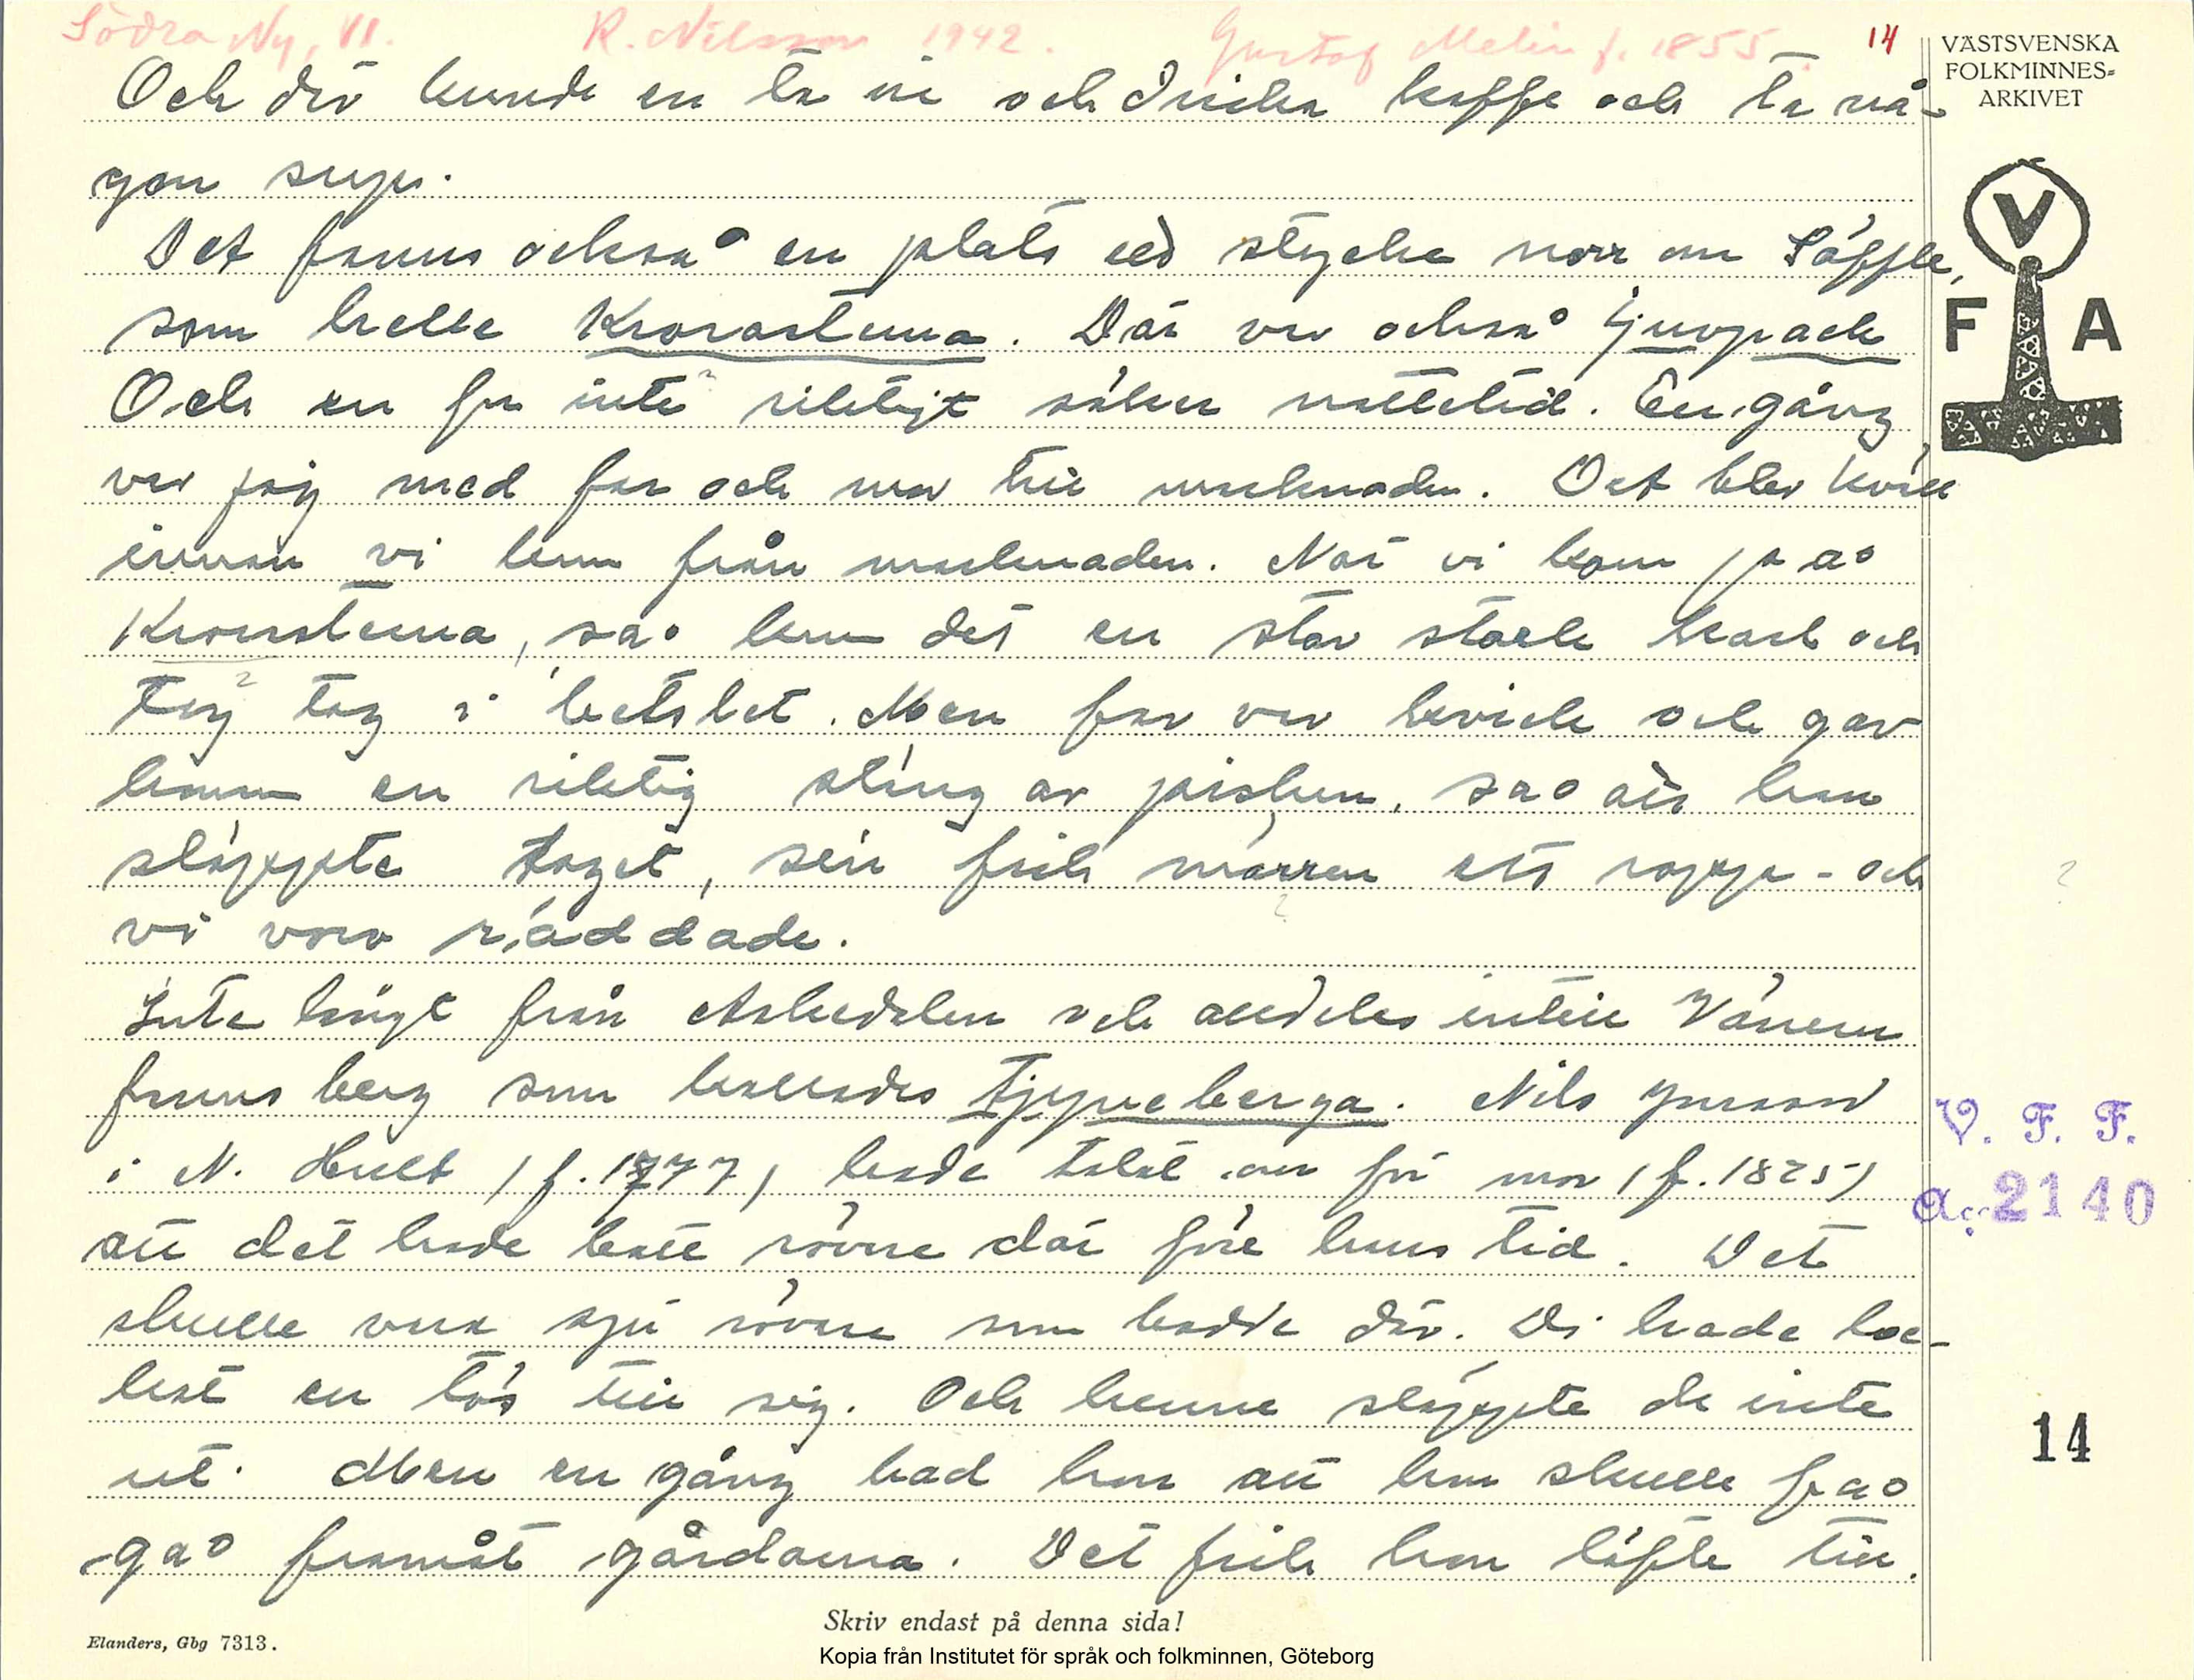 Södra Ny, Vl. R. Nilsson 1942. Gustaf Melin f. 1855. 14
VÄSTSVENSKA
FOLKMINNES-
ARKIVET
Och där kunde en ta in och dricka kaffe och ta nå-
gon sup.
Det fanns också en plats ett stycke norr om Säffle,
som hette Krorastenna. Där var också tjuvpack
Och en for inte riktigt säker nattetid. En gång
var jag med far och mor till marknaden. Det blev kväll
innan vi kom från marknaden. När vi kom på
Krorastenna, så kom det en stor stark karl och
tog tag i betslet. Men far var kvick och gav
honom en riktig släng av pisken, så att han
släppte taget, sen fick märren ett rapp - och
vi voro räddade.
Inte långt från Askedalen och alldeles intill Vänern
fanns berg som kallades Tjyveberga. Nils Jonsson
i N. Hult (f. 1777) hade talat om för mor (f. 1825)
att det hade bott rövare där före hans tid. Det
skulle vara sju rövare som bodde där. Di hade loc-
kat en tös till sig. Och henne släppte de inte
ut. Men en gång bad hon att hon skulle få
gå framåt gårdarna. Det fick hon löfte till.
V
F A
V. F. F.
a: 2140
14
Skriv endast på denna sida!
Elanders, Gbg 7313.
Kopia från Institutet för språk och folkminnen, Göteborg